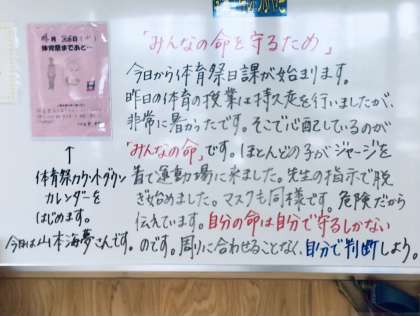 「みんなの命を守るため」
今日から体育祭日課が始まります。
昨日の体育の授業は持久走を行いましたが、
非常に暑かったです。そこで心配しているのが
「みんなの命」です。ほとんどの子がジャージを
着て運動場に来ました。先生の指示で脱
ぎ始めました。マスクも同様です。危険だから
伝えています。自分の命は自分で守るしかない
のです。周りに合わせることなく、自分で判断しよう。
体育祭まであと…
↑
体育祭カウントダウン
カレンダーを
はじめます。
今日は山本海夢さんです。